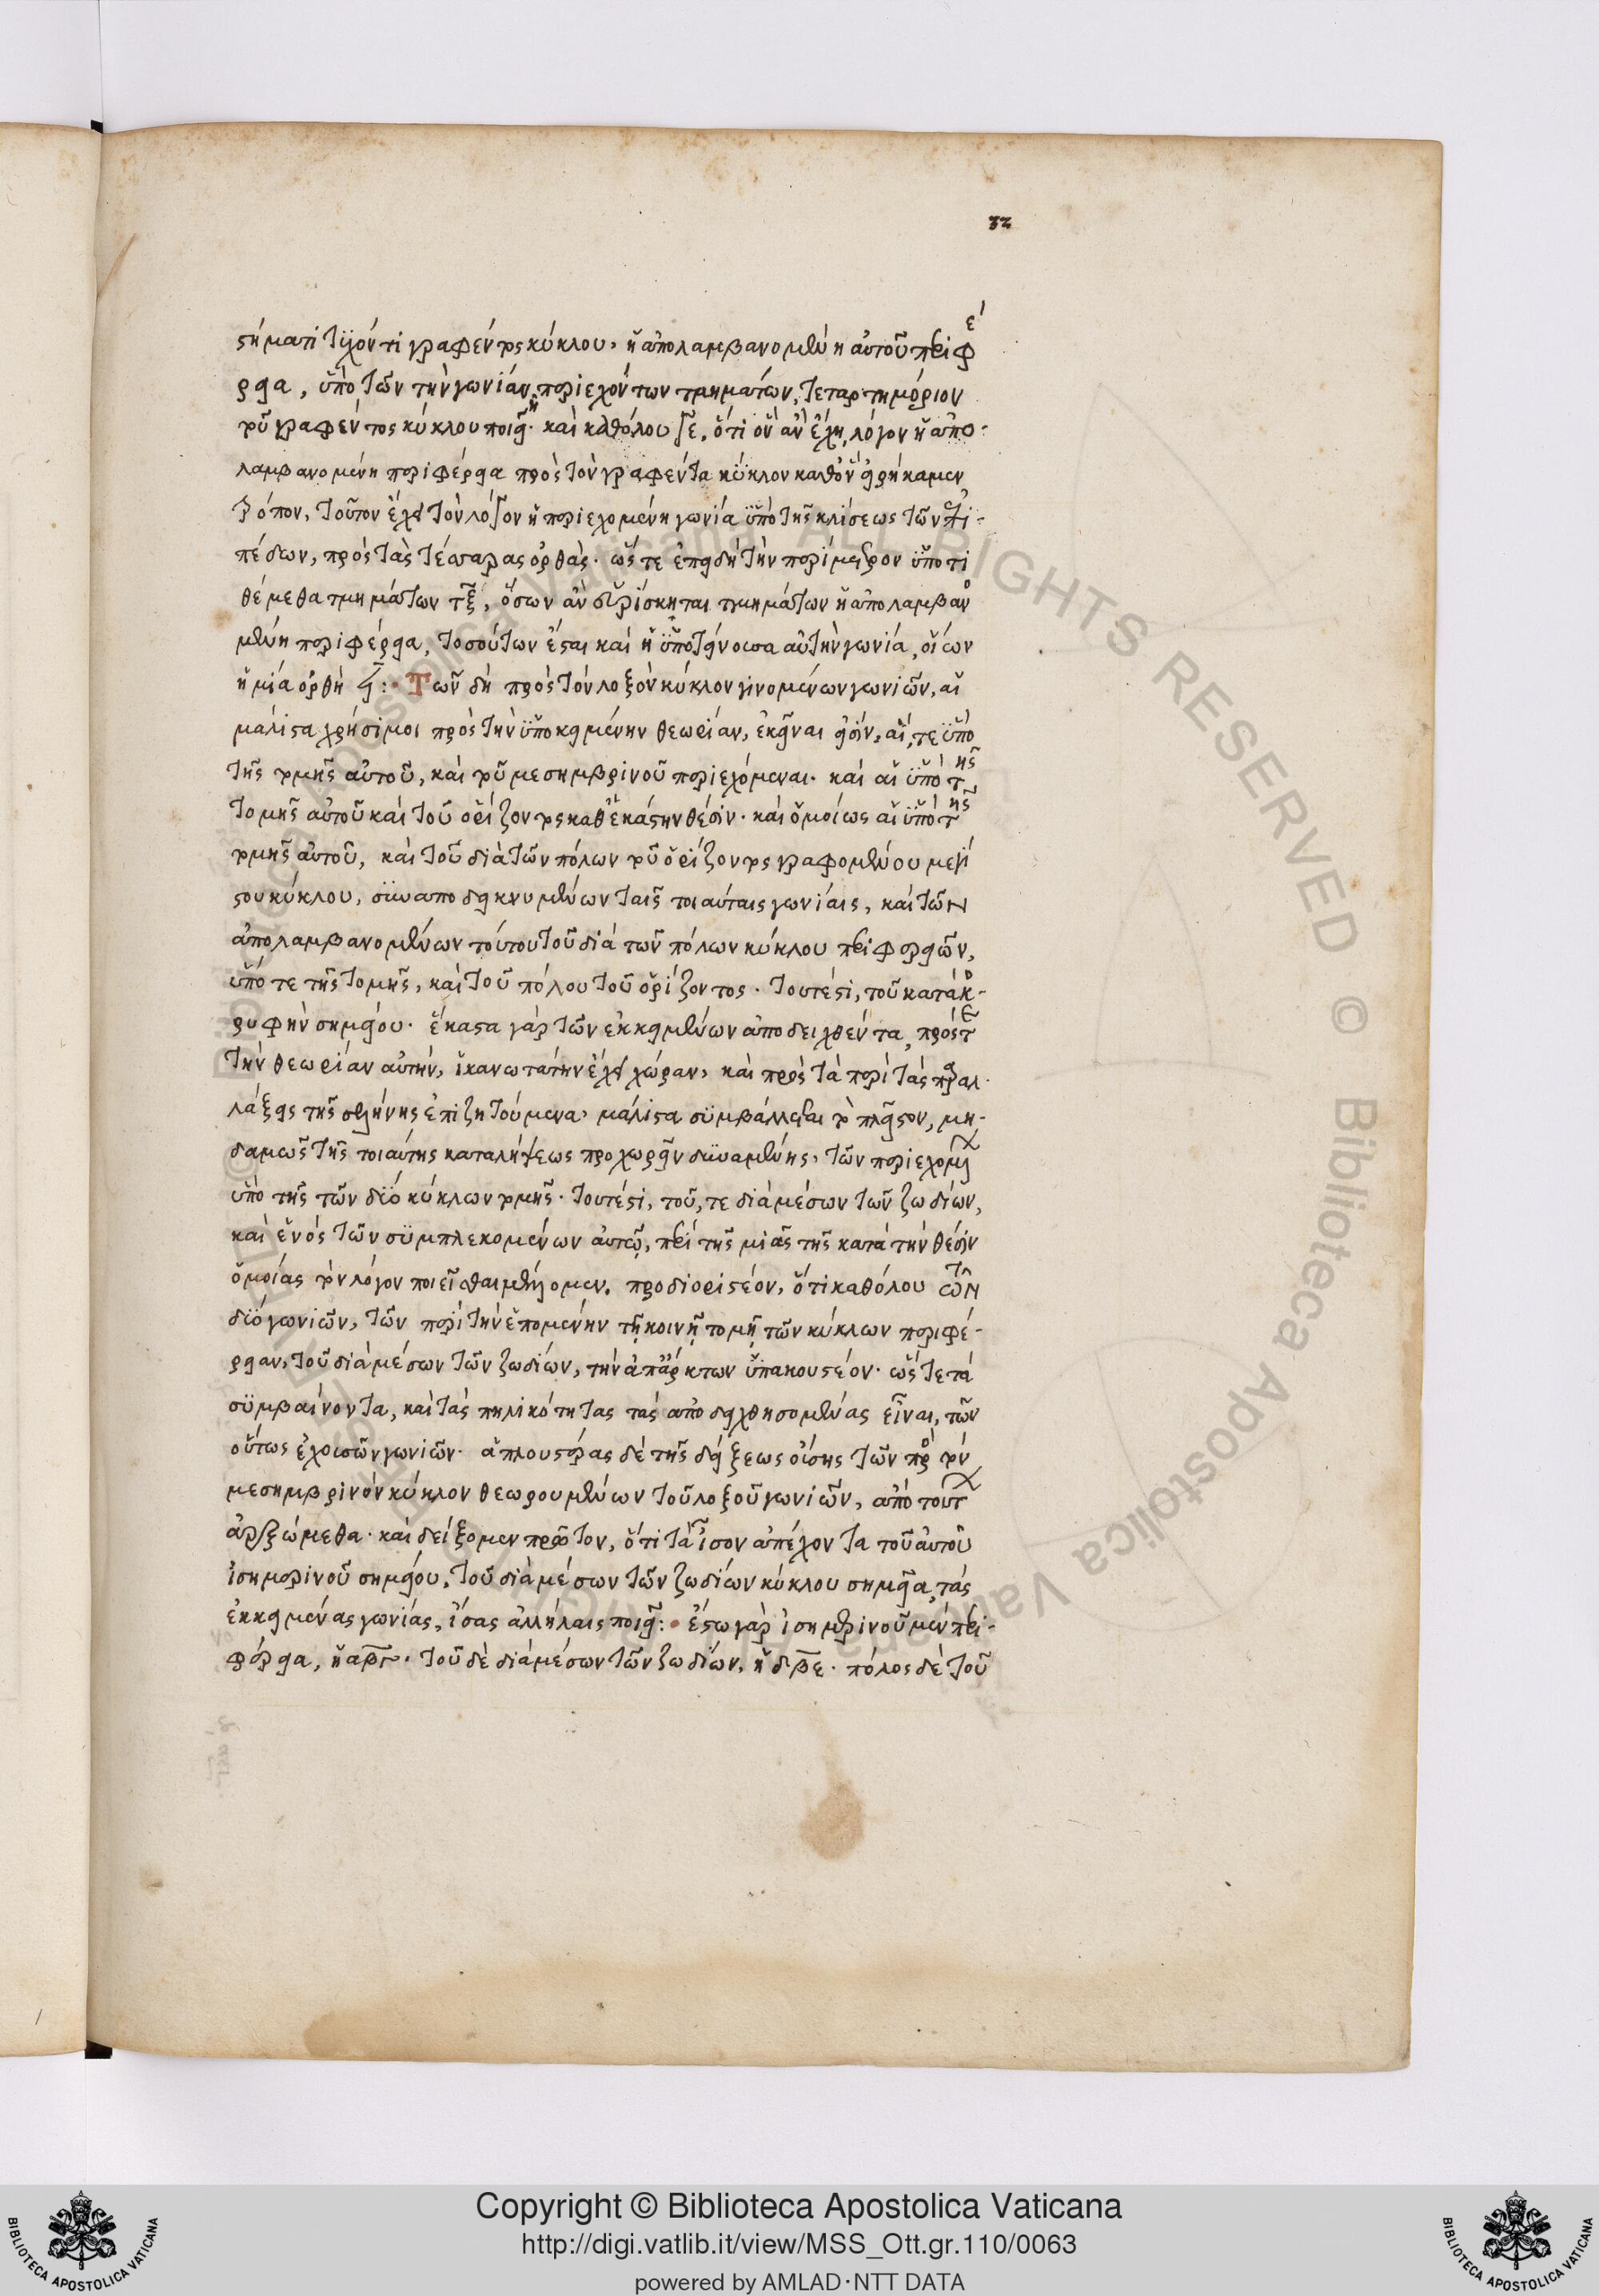 32
στήματι τυχόντι γραφέντος κύκλου, ἡ ἀπολαμβανομένη αὐτοῦ περιφέ
ρεια, ὑπὸ τῶν τὴν γωνίαν περιεχόντων τμημάτων, τεταρτημόριον
τοῦ γραφέντος κύκλου ποιῇ. καὶ καθόλου γε, ὅτι ὃν ἂν ἔχῃ λόγον ἡ ἀπο-
λαμβανομένη περιφέρεια πρὸς τὸν γραφέντα κύκλον καθ' ὃν εἰρήκαμεν
τρόπον, τοῦτον ἔχει τὸν λόγον ἡ περιεχομένη γωνία ὑπὸ τῆς κλίσεως τῶν ἐπι-
πέδων, πρὸς τὰς τέσσαρας ὀρθάς. ὥστε ἐπειδὴ τὴν περίμετρον ὑποτι
θέμεθα τμημάτων τξ, ὅσων ἂν εὑρίσκηται τμημάτων ἡ ἀπολαμβανο
μένη περιφέρεια, τοσούτων ἔσται καὶ ἡ ὑποτείνουσα αὐτὴν γωνία, οἵων
ἡ μία ὀρθὴ ϟ: Τῶν δὴ πρὸς τὸν λοξὸν κύκλον γινομένων γωνιῶν, αἱ
μάλιστα χρήσιμοι πρὸς τὴν ὑποκειμένην θεωρίαν, ἐκεῖναι εἰσίν, αἵ, τε ὑπὸ
τῆς τομῆς αὐτοῦ, καὶ τοῦ μεσημβρινοῦ περιεχόμεναι. καὶ αἱ ὑπὸ τῆς
τομῆς αὐτοῦ καὶ τοῦ ὁρίζοντος καθ' ἑκάστην θέσιν. καὶ ὁμοίως αἱ ὑπὸ τῆς
τομῆς αὐτοῦ, καὶ τοῦ διὰ τῶν πόλων τοῦ ὁρίζοντος γραφομένου μεγί
στου κύκλου, συναποδεικνυμένων ταῖς τοιαύταις γωνίαις, καὶ τῶν
ἀπολαμβανομένων τούτου τοῦ διὰ τῶν πόλων κύκλου περιφερειῶν,
ὑπό τε τῆς τομῆς, καὶ τοῦ πόλου τοῦ ὁρίζοντος. τουτέστι, τοῦ κατὰ κο-
ρυφὴν σημείου. ἕκαστα γὰρ τῶν ἐκκειμένων ἀποδειχθέντα, πρός τε
τὴν θεωρίαν αὐτὴν, ἱκανωτάτην ἔχει χώραν, καὶ πρὸς τὰ περὶ τὰς παραλ-
λάξεις τῆς σελήνης ἐπιζητούμενα, μάλιστα συμβάλλεται τὸ πλεῖστον, μη-
δαμῶς τῆς τοιαύτης καταλήψεως προχωρεῖν δυναμένης, τῶν περιεχομένων
ὑπὸ τῆς τῶν δύο κύκλων τομῆς. τουτέστι, τοῦ, τε διὰ μέσων τῶν ζωδίων,
καὶ ἑνὸς τῶν συμπλεκομένων αὐτῷ, περὶ τῆς μιᾶς τῆς κατὰ τὴν θέσιν
ὁμοίας τὸν λόγον ποιεῖσθαι μέλλομεν. προδιοριστέον, ὅτι καθόλου τῶν
δύο γωνιῶν, τῶν περὶ τὴν ἑπομένην τῇ κοινῇ τομῇ τῶν κύκλων περιφέ-
ρειαν, τοῦ διὰ μέσων τῶν ζωδίων, τὴν ἀπ' ἄρκτων ὑπακουστέον. ὥστε τὰ
συμβαίνοντα, καὶ τὰς πηλικότητας τὰς ἀποδειχθησομένας εἶναι, τῶν
οὕτως ἐχουσῶν γωνιῶν. ἁπλουστέρας δὲ τῆς δείξεως οὔσης τῶν πρὸς τὸν
μεσημβρινὸν κύκλον θεωρουμένων τοῦ λοξοῦ γωνιῶν, ἀπὸ τούτων
ἀρξώμεθα. καὶ δείξομεν πρῶτον, ὅτι τὰ ἴσον ἀπέχοντα τοῦ αὐτοῦ
ἰσημερινοῦ σημείου, τοῦ διὰ μέσων τῶν ζωδίων κύκλου σημεῖα, τὰς
ἐκκειμένας γωνίας, ἴσας ἀλλήλαις ποιεῖ: ἔστω γὰρ ἰσημερινοῦ μὲν περι-
φέρεια, ἡ αβγ. τοῦ δὲ διὰ μέσων τῶν ζωδίων, ἡ δβε. πόλος δὲ τοῦ
Copyright © Biblioteca Apostolica Vaticana
http://digi.vatlib.it/view/MSS_Ott.gr.110/0063
powered by AMLAD·NTT DATA